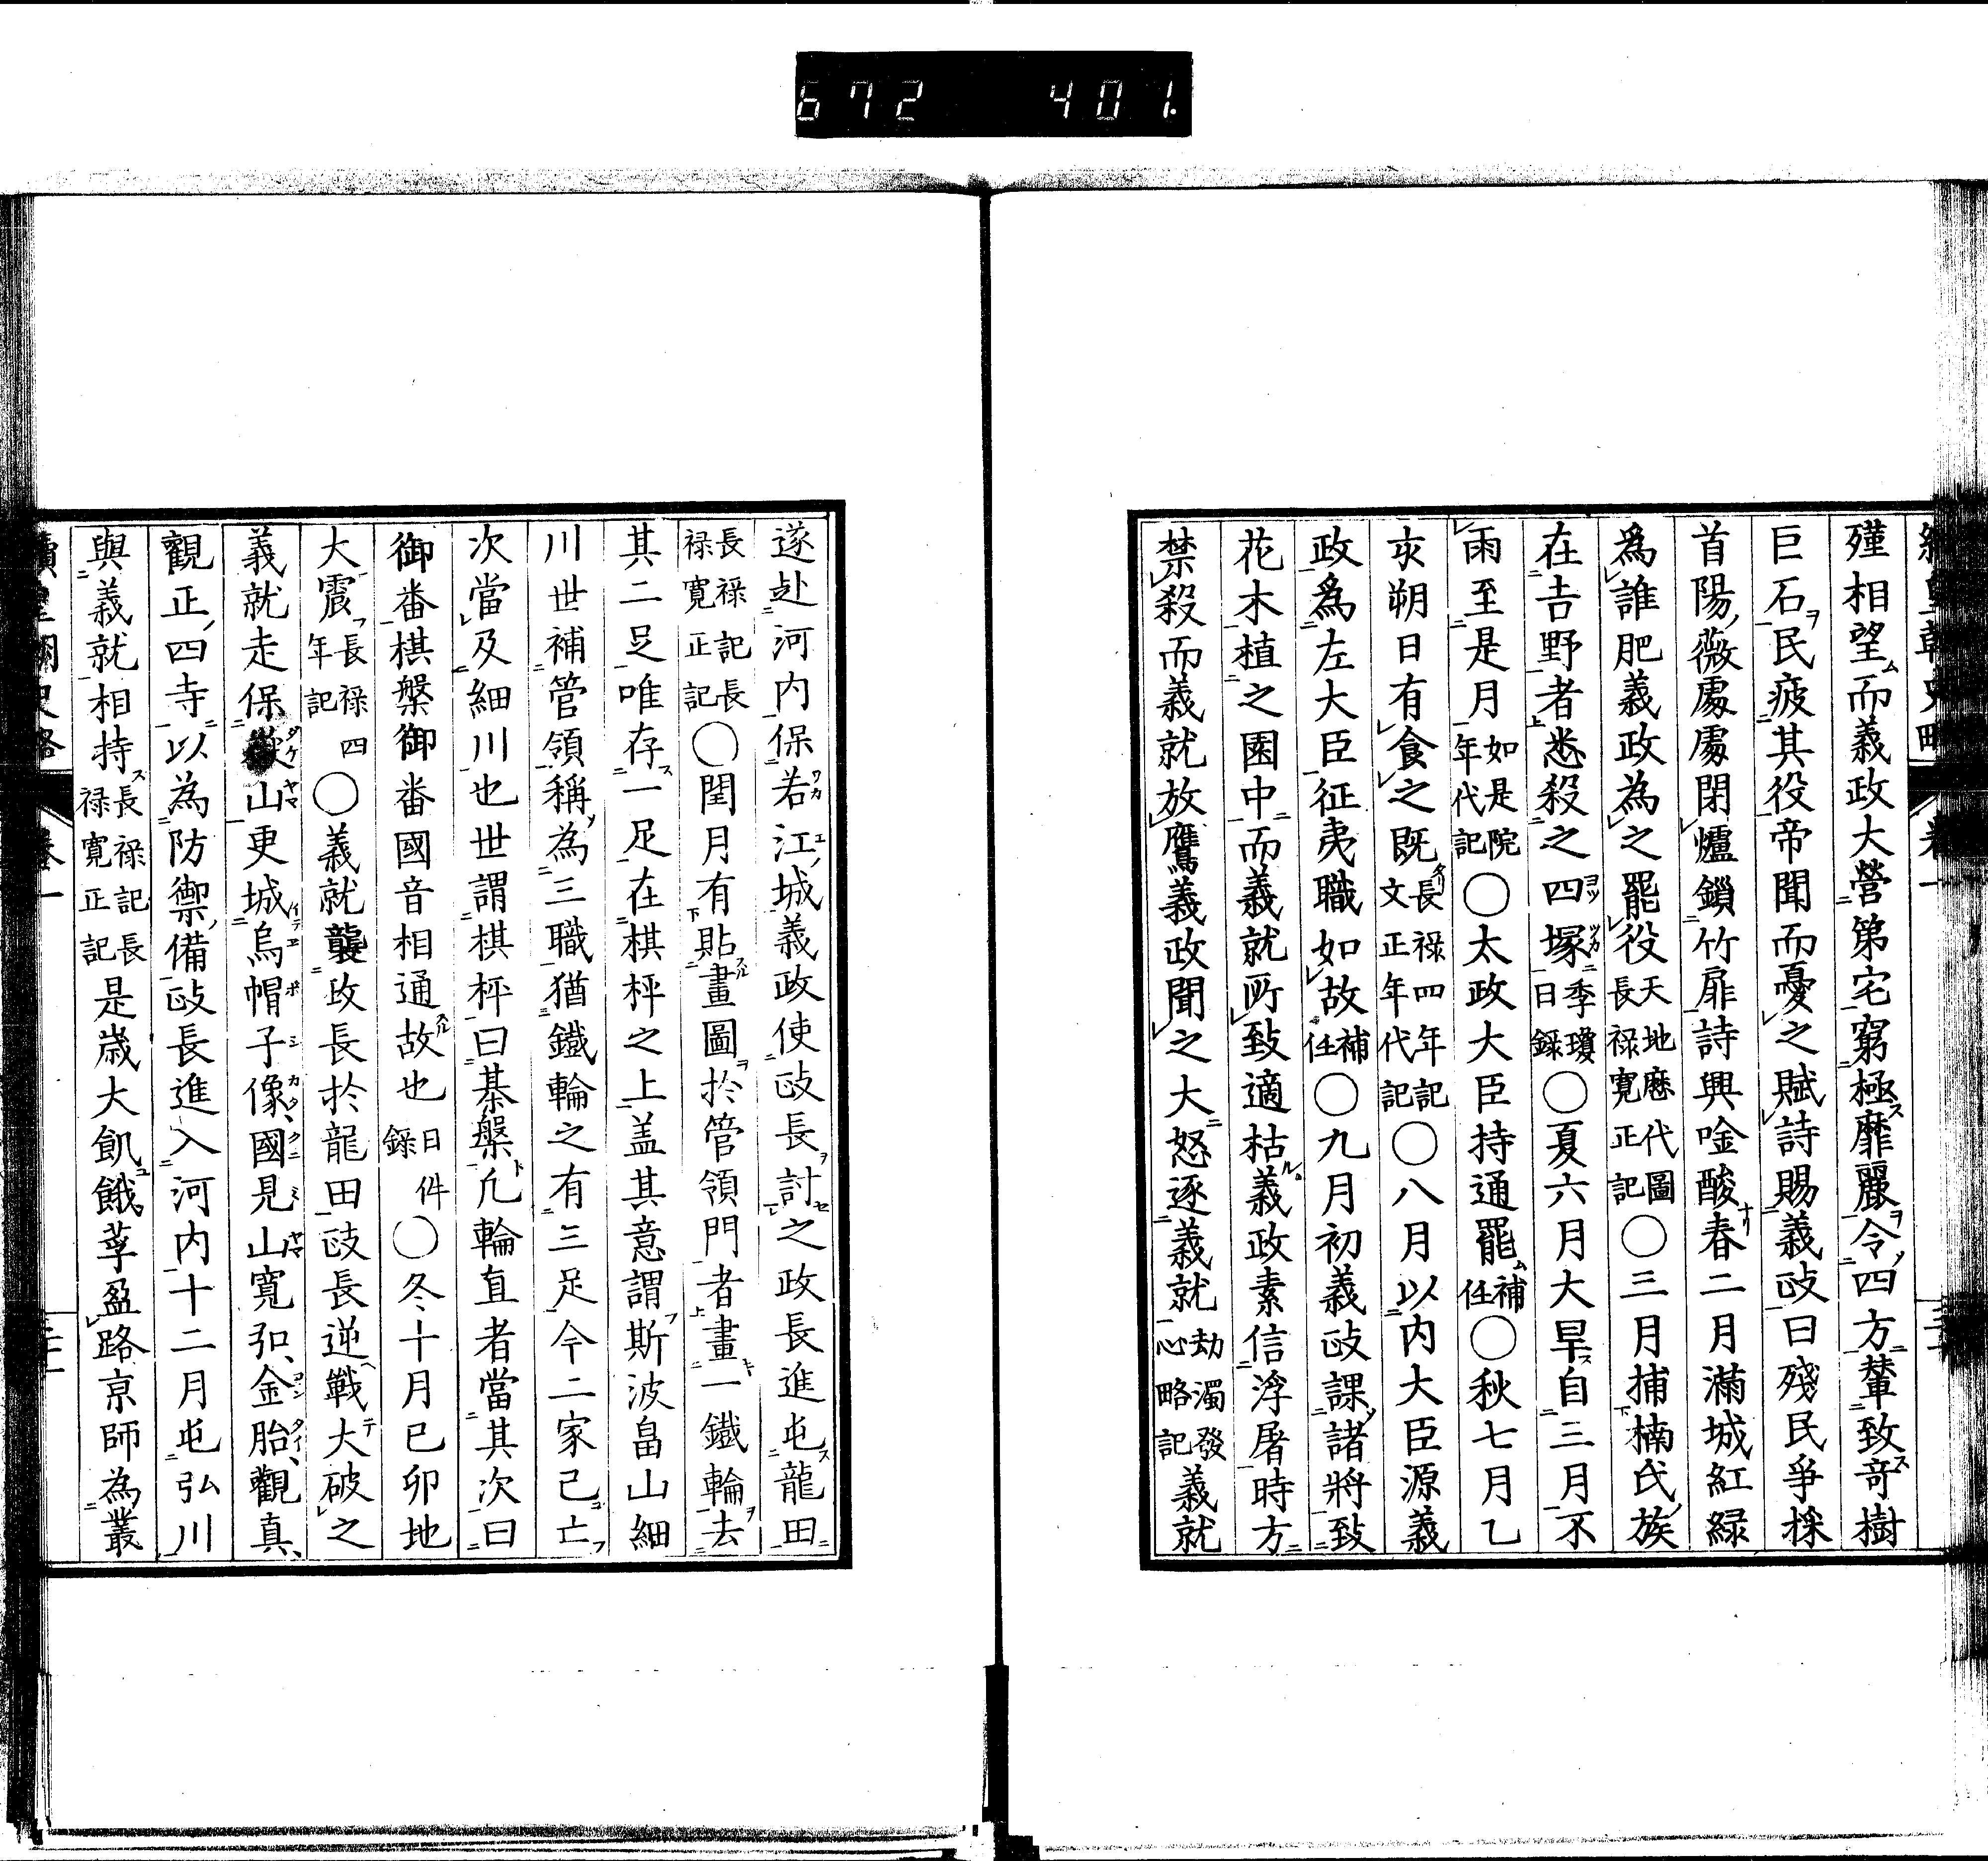 672 401.
續皇朝史略 卷一
殣相望而義政大營第宅窮極靡麗令四方輦致奇樹
巨石民疲其役帝聞而憂之賦詩賜義政曰殘民爭採
首陽薇處處閉爐鎖竹扉詩興唫酸春二月滿城紅緑
爲誰肥義政為之罷役天地麽代圖長禄寛正記〇三月捕楠氏族
在吉野者悉殺之四塚季瓊日録〇夏六月大旱自三月不
雨至是月如是院年代記〇太政大臣持通罷補任〇秋七月乙
亥朔日有食之既長禄四年記文正年代記〇八月以内大臣源義
政爲左大臣征夷職如故補任〇九月初義政課諸將致
花木植之園中而義就所致適枯義政素信浮屠時方
禁殺而義就放鷹義政聞之大怒逐義就劫濁發心略記義就
遂赴河内保若江城義政使政長討之政長進屯龍田
長禄記長禄寛正記〇閏月有貼畫圖於管領門者畫一鐵輪去
其二足唯存一足在棋枰之上盖其意謂斯波畠山細
川世補管領稱為三職猶鐵輪之有三足今二家已亡
次當及細川也世謂棋枰曰棊槃凢輪直者當其次曰
御番棋槃御番國音相通故也日件録〇冬十月已卯地
大震長禄四年記〇義就襲政長於龍田政長逆戰大破之
義就走保嶽山更城烏帽子像國見山寛弘金胎觀真
觀正四寺以為防禦備政長進入河内十二月屯弘川
與義就相持長禄記長禄寛正記是歳大飢餓莩盈路京師為叢
續皇朝史略 卷一